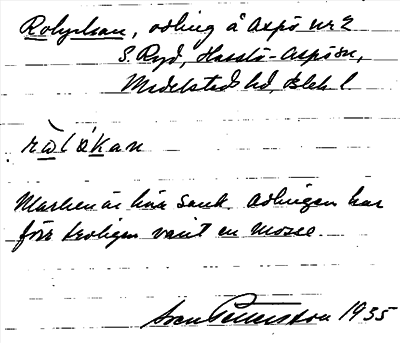 Rolyckan, odling å Aspö nr 2
S. Ryd, Hasslö-Aspö sn,
Medelstads hd, Blek l.
rålökan
Marken är här sank. Odlingen har
förr troligen varit en mosse.
Sven Pettersson 1935